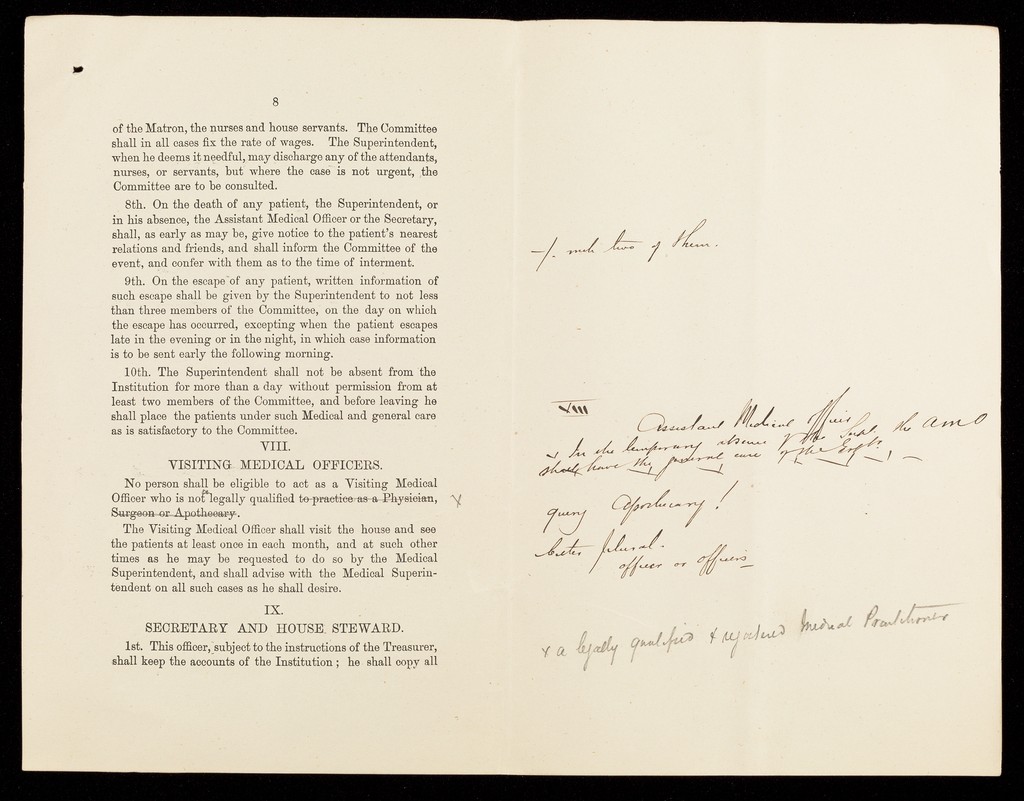 8
of the Matron, the nurses and house servants. The Committee
shall in all cases fix the rate of wages. The Superintendent,
when he deems it needful, may discharge any of the attendants,
nurses, or servants, but where the case is not urgent, the
Committee are to be consulted.
8th. On the death of any patient, the Superintendent, or
in his absence, the Assistant Medical Officer or the Secretary,
shall, as early as may be, give notice to the patient's nearest
relations and friends, and shall inform the Committee of the
event, and confer with them as to the time of interment.
9th. On the escape of any patient, written information of
such escape shall be given by the Superintendent to not less
than three members of the Committee, on the day on which
the escape has occurred, excepting when the patient escapes
late in the evening or in the night, in which case information
is to be sent early the following morning.
10th. The Superintendent shall not be absent from the
Institution for more than a day without permission from at
least two members of the Committee, and before leaving he
shall place the patients under such Medical and general care
as is satisfactory to the Committee.
VIII.
VISITING MEDICAL OFFICERS.
No person shall be eligible to act as a Visiting Medical
Officer who is not legally qualified to practice as a Physician, x
Surgeon or Apothecary.
The Visiting Medical Officer shall visit the house and see
the patients at least once in each month, and at such other
times as he may be requested to do so by the Medical
Superintendent, and shall advise with the Medical Superin-
tendent on all such cases as he shall desire.
IX.
SECRETARY AND HOUSE STEWARD.
1st. This officer, subject to the instructions of the Treasurer,
shall keep the accounts of the Institution; he shall copy all
two of them.
VIII
Assistant Medical Officer
In the temporary absence of the Supt. the AMO
shall have the general care of the
query Apothecary!
better plural.
officer or officers
x a legally qualified & registered Medical Practitioner